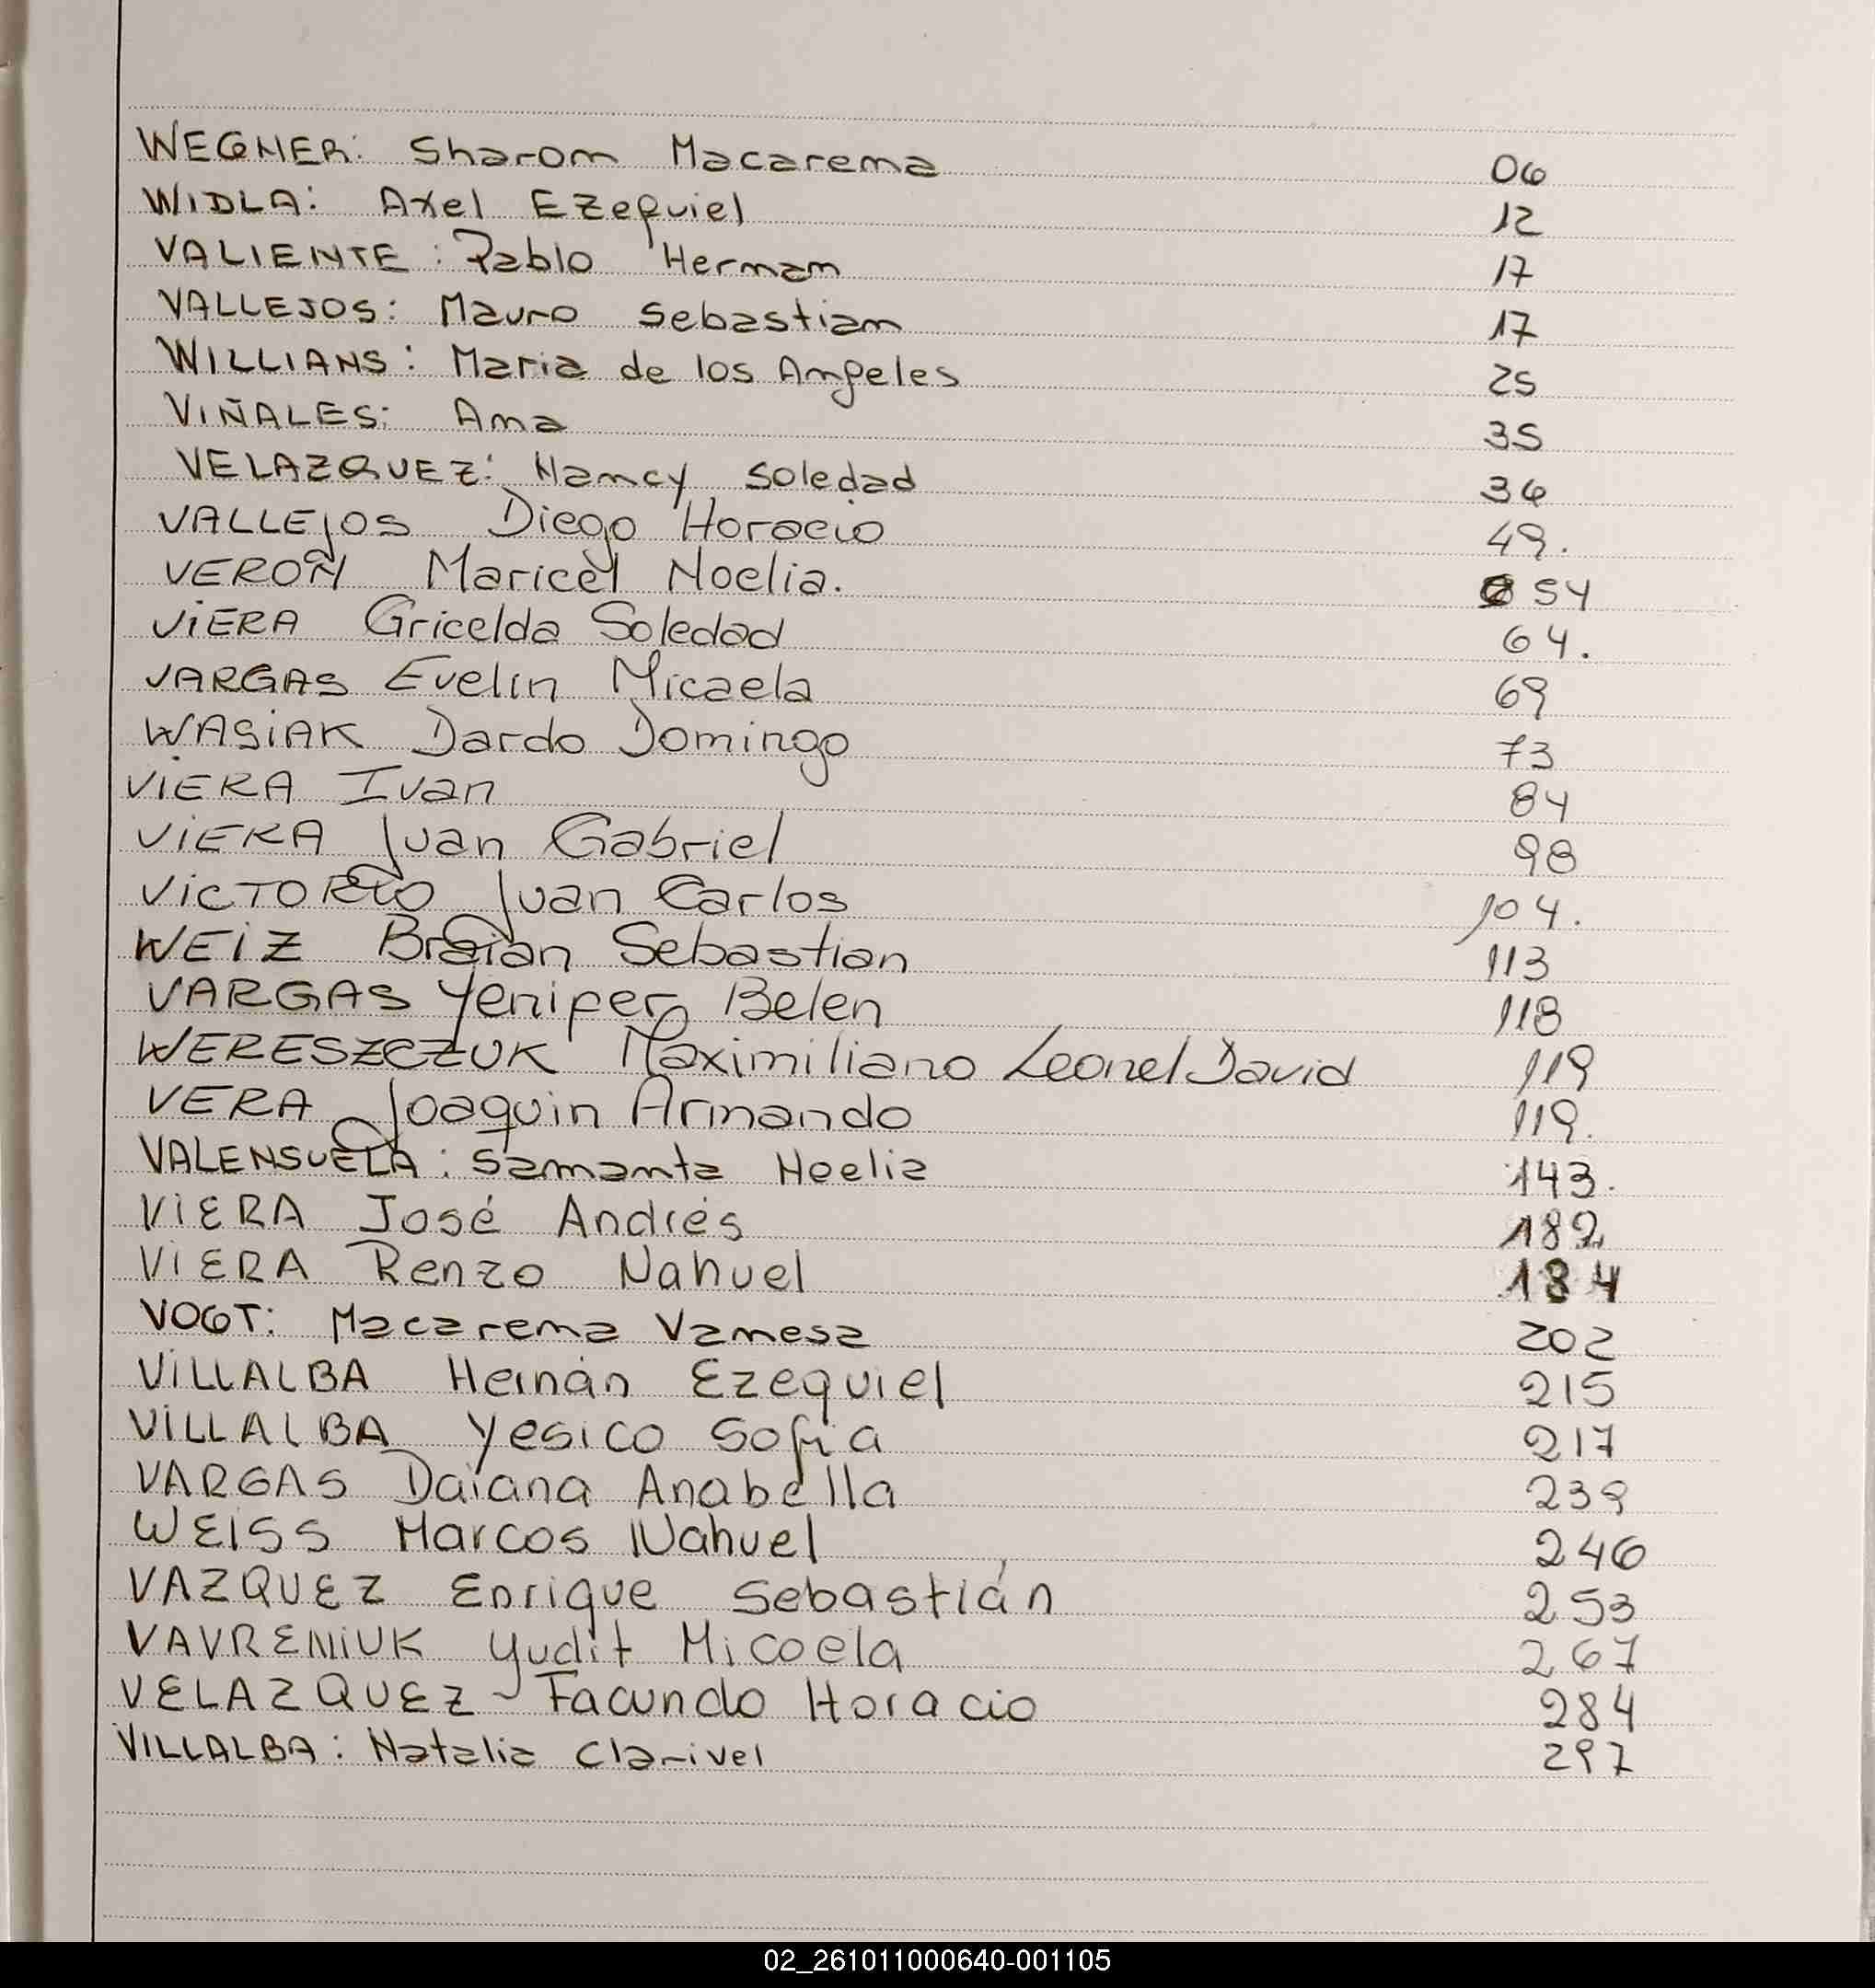 WEGNER: Sharon Macarena 06
WIDLA: Axel Ezequiel 12
VALIENTE: Pablo Hernan 17
VALLEJOS: Mauro Sebastian 17
WILLIANS: Maria de los Angeles 25
VIÑALES: Ana 35
VELAZQUEZ: Nancy Soledad 36
VALLEjOS Diego Horacio 49.
VEROÑ Maricel Noelia. 54
ViERA Gricelda Soledad 64.
VARGAS Evelin Micaela 69
WASiAK Dardo Domingo 73
ViERA Ivan 84
ViERA Juan Gabriel 98
ViCTORIO Juan Carlos 104.
WEiZ Braian Sebastian 113
VARGAS Yenifer Belen 118
WERESZCZUK Maximiliano Leonel David 119
VERA Joaquin Armando 119.
VALENSUELA: Samanta Noelia 143.
ViERA José Andrés 182
ViERA Renzo Nahuel 184
VOGT: Macarena Vanesa 202
ViLLALBA Hernán Ezequiel 215
ViLLALBA Yesica Sofia 217
VARGAS Daiana Anabella 239
WEISS Marcos Nahuel 246
VAZQUEZ Enrique Sebastián 253
VAVRENiUK Yudit Micaela 267
VELAZQUEZ Facundo Horacio 284
VILLALBA: Natalia Clarivel 297
02_261011000640-001105